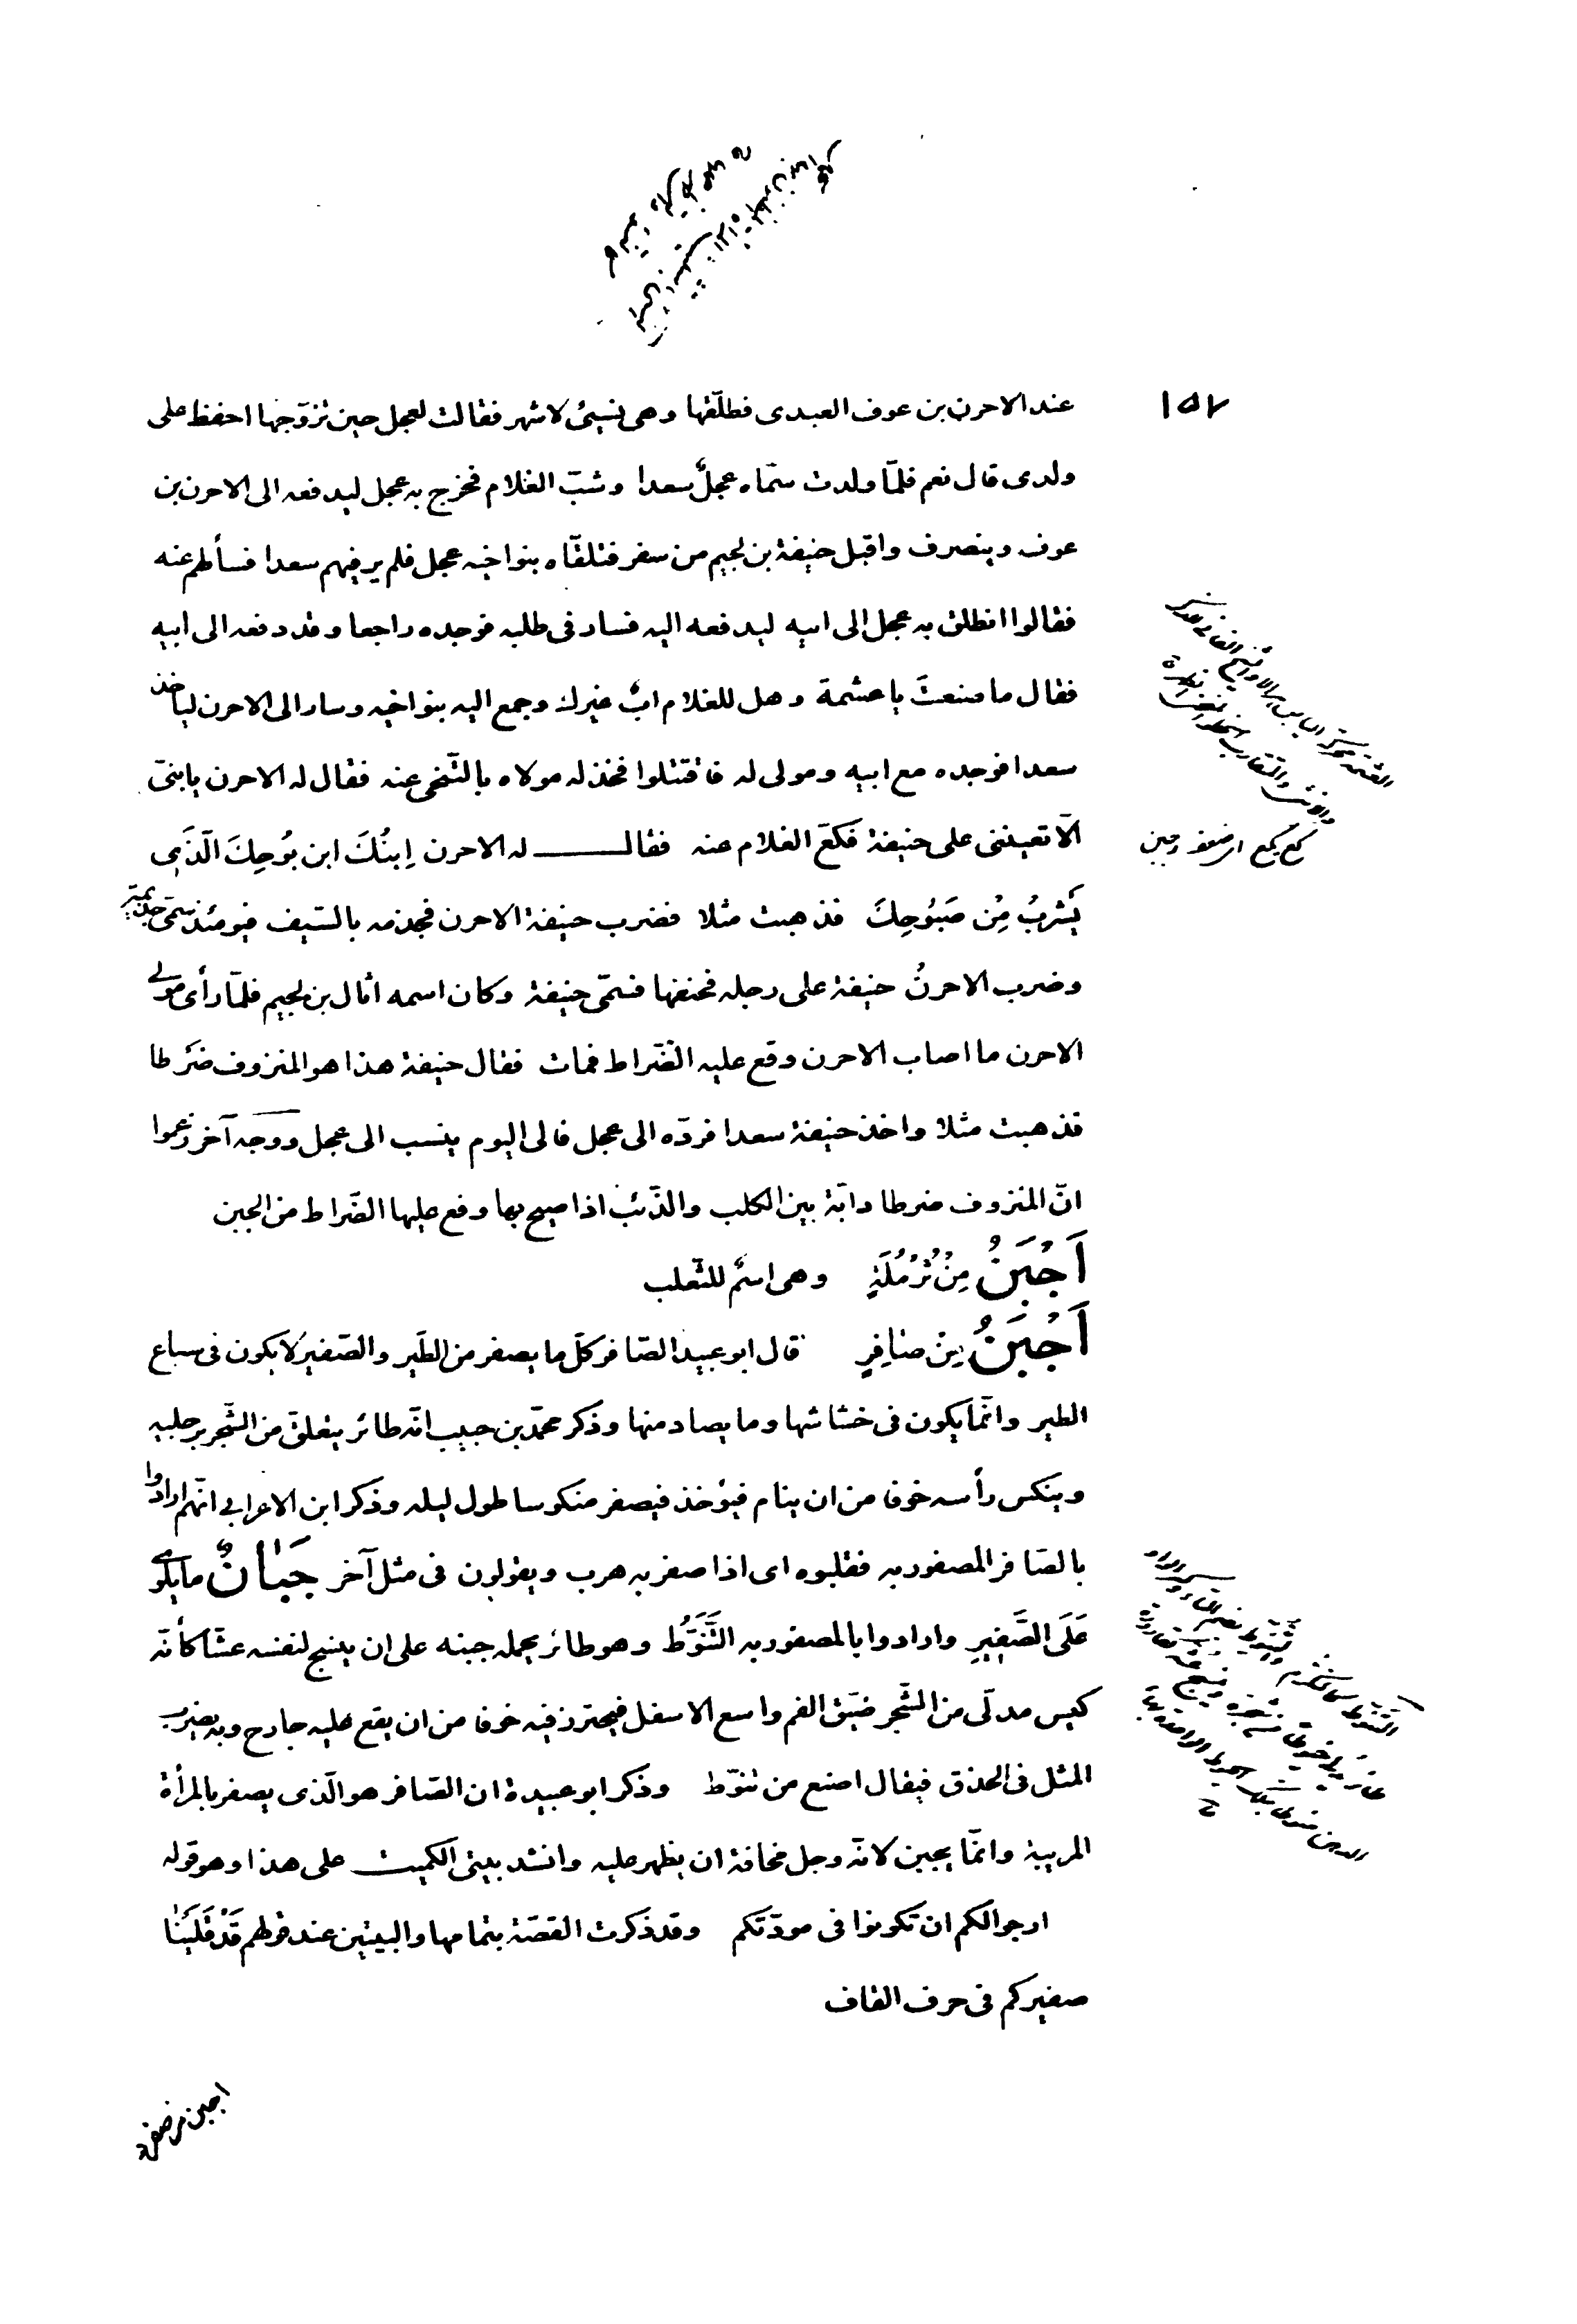 ١٥٧
عند الاحرن بن عوف العبدى فطلّقها وهى نسئ لاشهر فقالت لعجل حين تزوّجها احفظ على
ولدى قال نعم فلمّا ولدت سمّاه عجلٌ سعدا وشبّ الغلام فخرج به عجل ليدفعه الى الاحرن بن
عوف وينصرف واقبل حنيفة بن لجيم من سفر فتلقّاه بنو اخيه عجل فلم ير فيهم سعدا فسألهم عنه
فقالوا انطلق به عجل الى ابيه ليدفعه اليه فسار فى طلبه فوجده راجعا وقد دفعه الى ابيه
فقال ما صنعتَ يا عشمة وهل للغلام ابٌ غيرك وجمع اليه بنو اخيه وسار الى الاحرن لياخذ
سعدا فوجده مع ابيه ومولى له فاقتتلوا فخذله مولاه بالتّنحّى عنه فقال له الاحرن يابنىّ
ألا تعيننى على حنيفة فكعّ الغلام عنه فقال له الاحرن اِبنُكَ ابن بُوحِكَ الّذى
يَشربُ مِن صَبُوحِكَ فذهبت مثلا فضرب حنيفة الاحرن فجذمه بالسّيف فيومئذ سمّى جذيمة
وضرب الاحرنُ حنيفة على رجله فحنفها فسمّى حنيفة وكان اسمه اثال بن لجيم فلمّا رأى مولى
الاحرن ما اصاب الاحرن وقع عليه الضّراط فمات فقال حنيفة هذا هو المنزوف ضَرِطا
فذهبت مثلا واخذ حنيفة سعدا فردّه الى عجل فالى اليوم ينسب الى عجل ووجه آخر زعموا
انّ المنزوف ضرطا دابّة بين الكلب والذّئب اذا صيح بها وقع عليها الضّراط من الجبن
اَجْبَنُ مِنْ ثُرْمُلَةٍ وهى اسمٌ للثّعلب
اَجْبَنُ مِنْ صَافِرٍ قال ابو عبيد الصّافر كلّ ما يصفر من الطّير والصّفير لا يكون فى سباع
الطير وانّما يكون فى خشاشها وما يصاد منها وذكر محمّد بن حبيب انّه طائر يتعلّق من الشّجر برجليه
وينكس رأسه خوفا من ان ينام فيؤخذ فيصفر منكوسا طول ليله وذكر ابن الاعرابى انّهم ارادوا
بالصّافر المصفور به فقلبوه اى اذا صفر به هرب ويقولون فى مثل آخر جَبَانٌ ما يلوى
عَلَى الصَّفِيرِ وارادوا بالمصفور به التَّنَوُّط وهو طائر يحمله جبنه على ان ينسج لنفسه عشّا كأنّه
كيس مدلّى من الشّجر ضيّق الفم واسع الاسفل فيحترز فيه خوفا من ان يقع عليه جارح وبه يضرب
المثل فى الحذق فيقال اصنع من تنوّط وذكر ابو عبيدة ان الصّافر هو الّذى يصفر بالمرأة
المريبة وانّما يجبن لانّه وجل مخافة ان يظهر عليه وانشد بيتى الكميت على هذا وهو قوله
ارجو لكم ان تكونوا فى مودّتكم وقد ذكرت القصّة بتمامها والبيتين عند قولهم قَدْ قَلَيْنَا
صفيركم فى حرف القاف
كعّ يكع اى ضعف وجبن
اجبن من ضفر